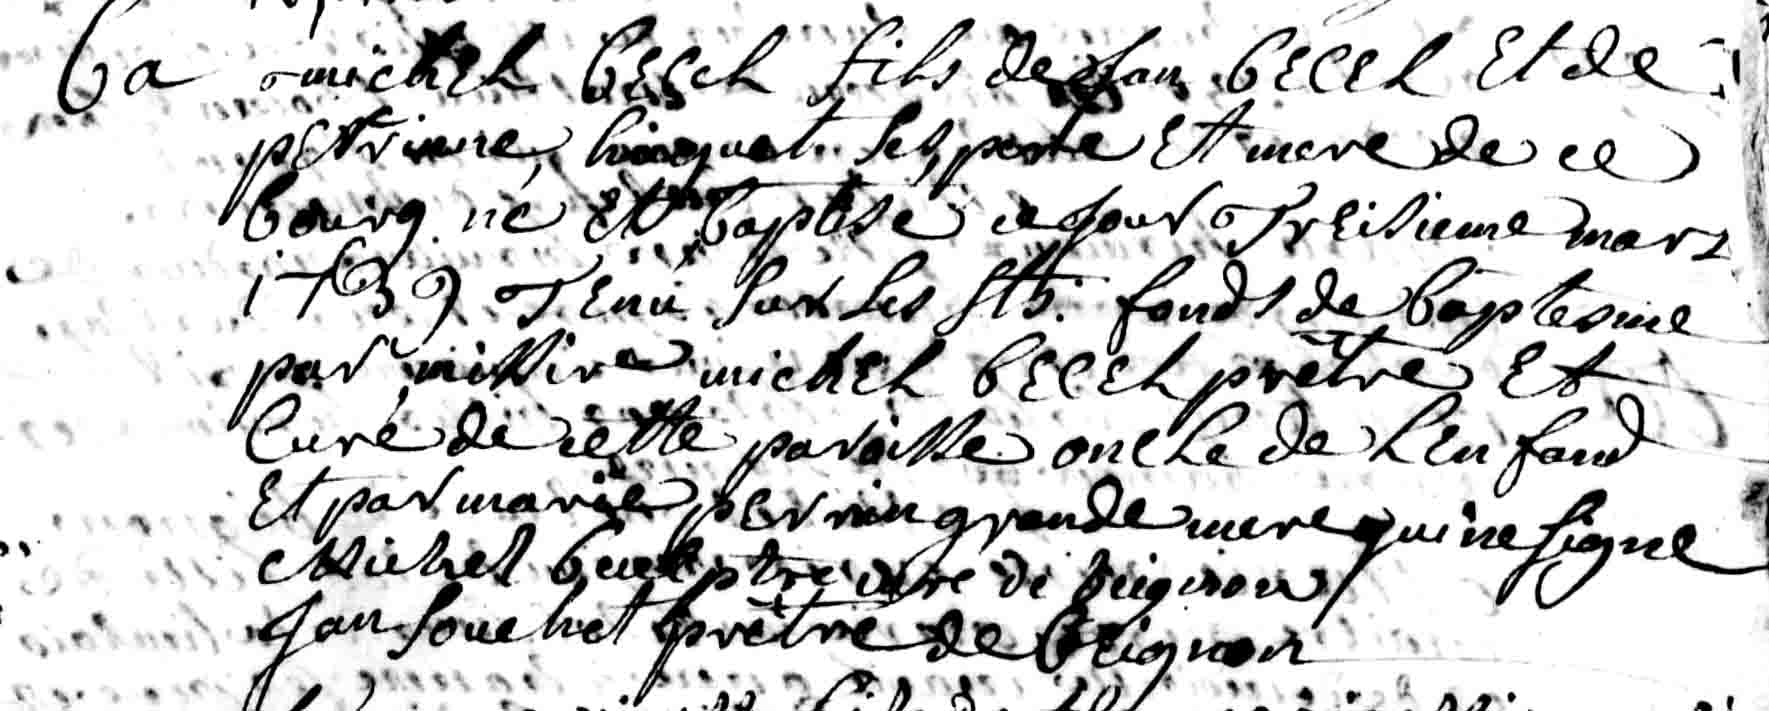 Ba michel becel fils de Jan becel Et de
petrinne, hinguet. Ses pere Et mere de ce
bourg né Et baptisé ce jour Treisieme mars
1739 Tenu sur Les sts. fonds de baptesme
par missire michel becel prêtre Et
Curé de cette paroisse oncle de L'enfand
Et par marie perrin grande mere qui ne signe
Michel becel ptre cure de beignon
Jan Souchet prêtre de beignon